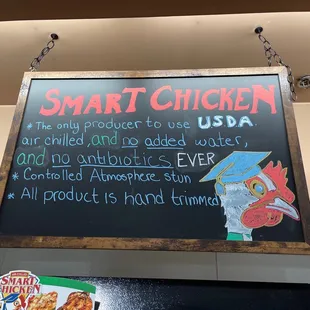 SMART CHICKEN
* The only producer to use USDA
air chilled, and no added water,
and no antibiotics EVER
* Controlled Atmosphere stun
* All product is hand trimmed
SMART
CHICKEN